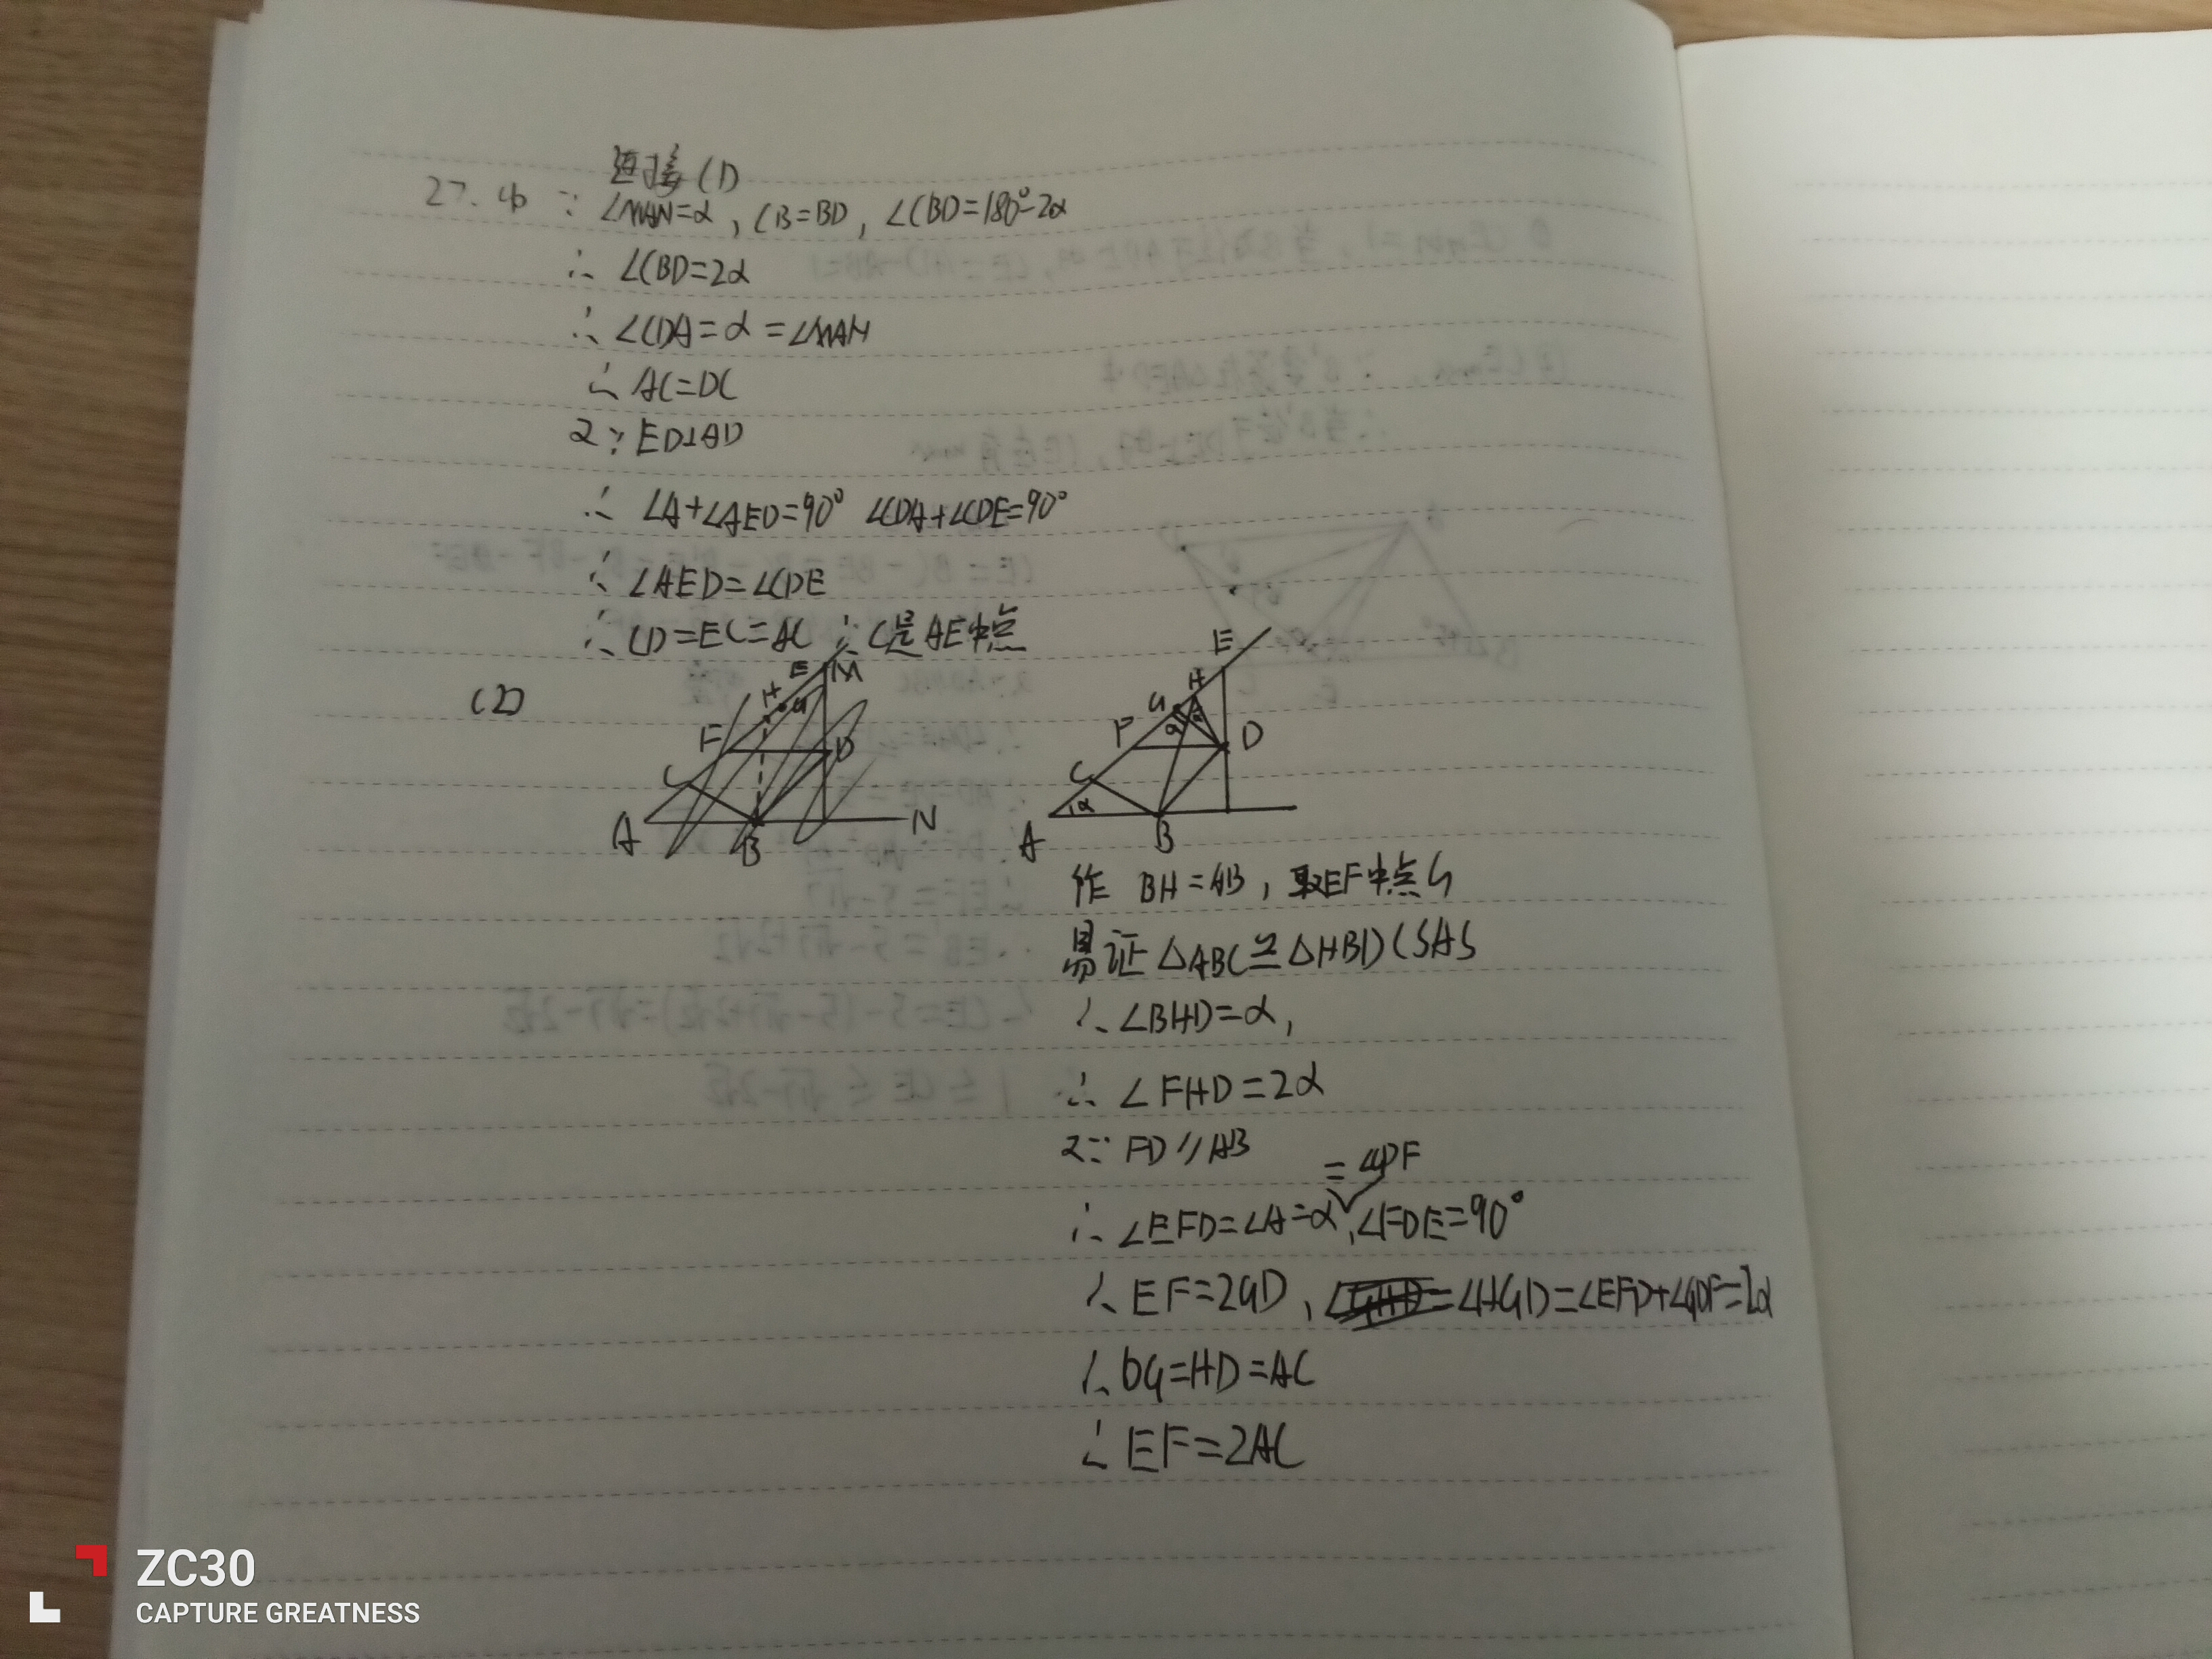 连接CD
27. (1) ∵ ∠MAN=α, CB=BD, ∠CBD=180°-2α
∴ ∠CBD=2α
∴ ∠CDA=α=∠MAN
∴ AC=DC
又∵ ED⊥AD
∴ ∠A+∠AED=90° ∠CDA+∠CDE=90°
∴ ∠AED=∠CDE
∴ CD=EC=AC ∴ C是AE中点
(2)
E M
H G
F D
C
A B N
E
H
G
F D
C
α α
α
A B
作 BH=AB, 取EF中点G
易证 △ABC≌△HBD(SAS
∴ ∠BHD=α,
∴ ∠FHD=2α
又∵ FD∥AB
∴ ∠EFD=∠A=α=∠GDF, ∠FDE=90°
∴ EF=2GD, ∠HGD=∠EFD+∠GDF=2α
∴ DG=HD=AC
∴ EF=2AC
ZC30
CAPTURE GREATNESS